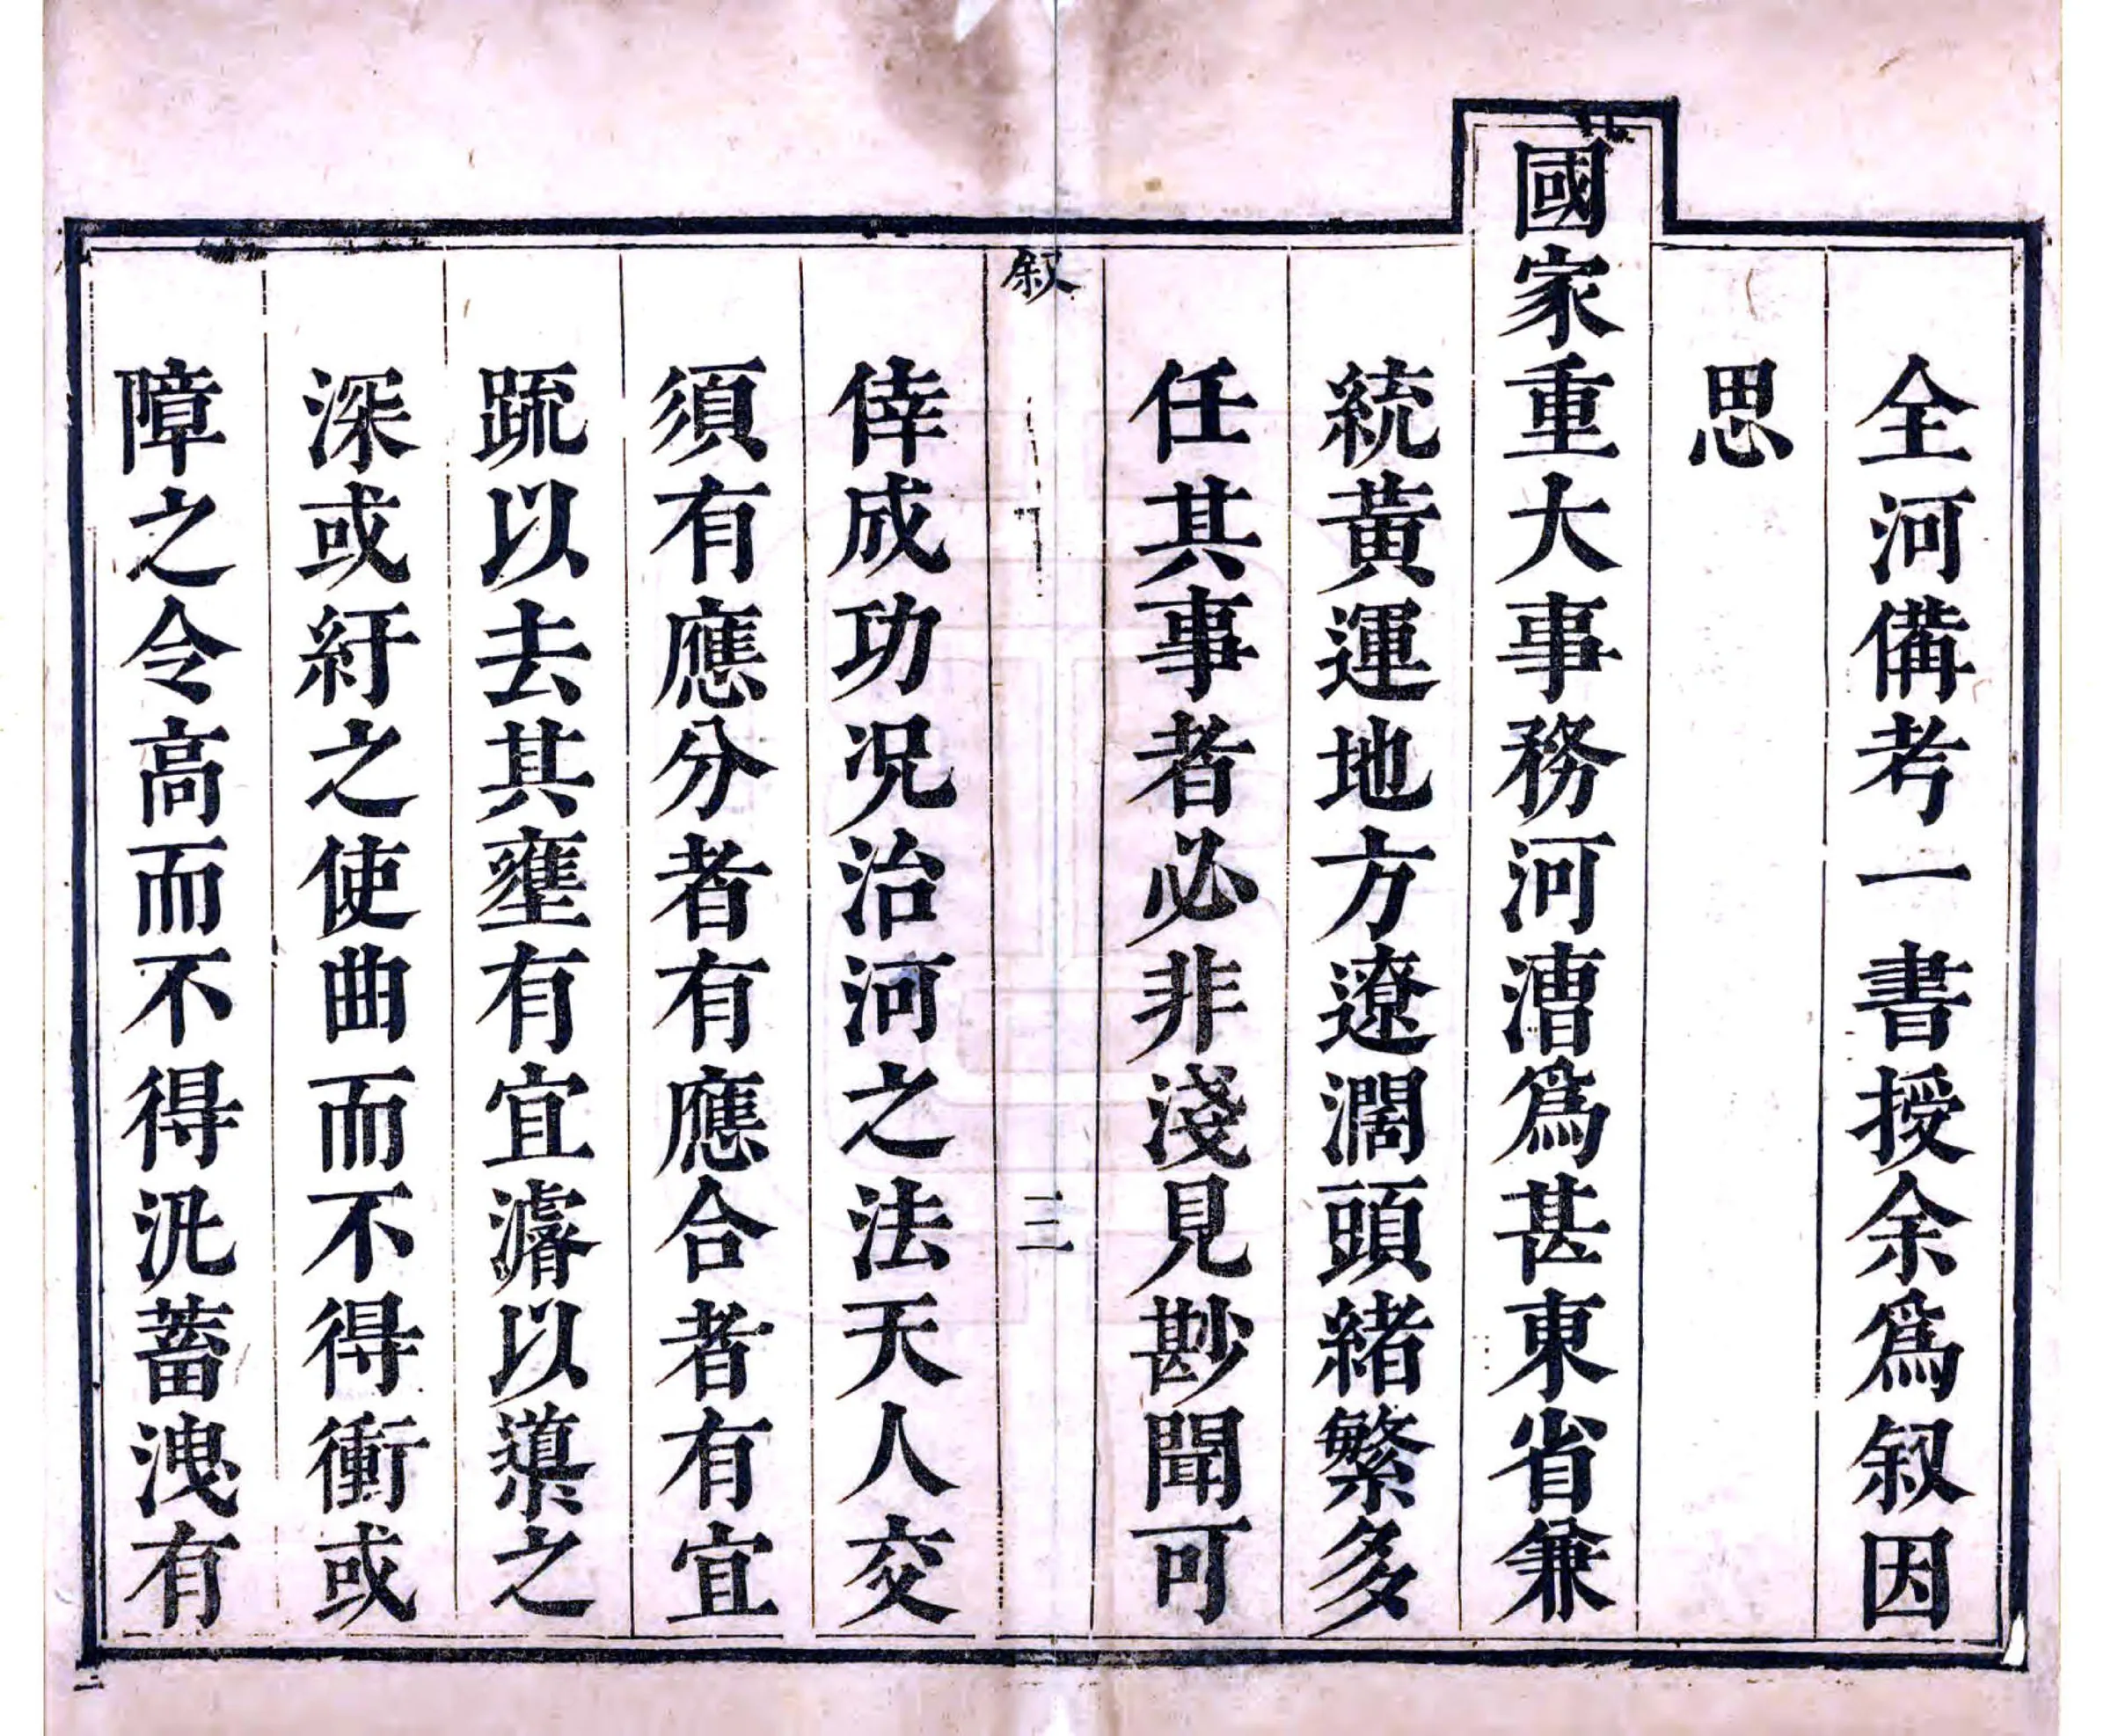 全河備考一書授余爲叙因
思
國家重大事務河漕爲甚東省兼
統黃運地方遼濶頭緒繁多
任其事者必非淺見尠聞可
叙
三
倖成功况治河之法天人交
須有應分者有應合者有宜
䟽以去其壅有宜濬以導之
深或紆之使曲而不得衝或
障之令高而不得汎蓄洩有